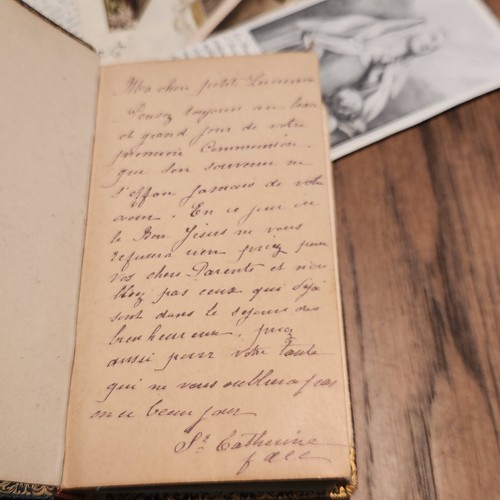 Ma chère petite
Pensez toujours au beau
et grand jour de votre
première Communion.
que son souvenir ne
s'efface jamais de votre
cœur. En ce jour où
le Bon Jésus ne vous
refusera rien priez pour
vos chers Parents et n'ou
bliez pas ceux qui déjà
sont dans le séjour des
bienheureux. priez
aussi pour votre tante
qui ne vous oubliera pas
en ce beau jour
Sr Catherine